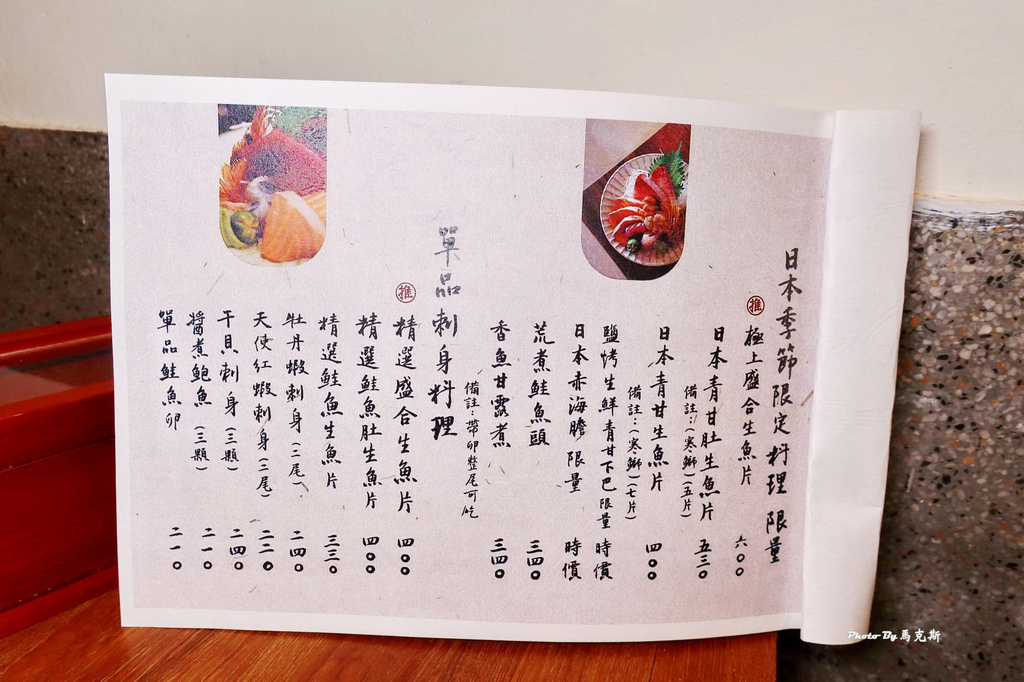 日本季節限定料理 限量
推 極上盛合生魚片 六〇〇
日本青甘肚生魚片 五三〇
備註:(寒鰤)(五片)
日本青甘生魚片 四〇〇
備註:(寒鰤)(七片)
鹽烤生鮮青甘下巴 限量 時價
日本赤海膽 限量 時價
荒煮鮭魚頭 三四〇
香魚甘露煮 三四〇
備註:帶卵整尾可吃
單品刺身料理
推 精選盛合生魚片 四〇〇
精選鮭魚肚生魚片 四〇〇
精選鮭魚生魚片 三三〇
牡丹蝦刺身(二尾) 二四〇
天使紅蝦刺身(二尾) 二二〇
干貝刺身(三顆) 二四〇
醬煮鮑魚(三顆) 二一〇
單品鮭魚卵 二一〇
Photo By 馬克斯